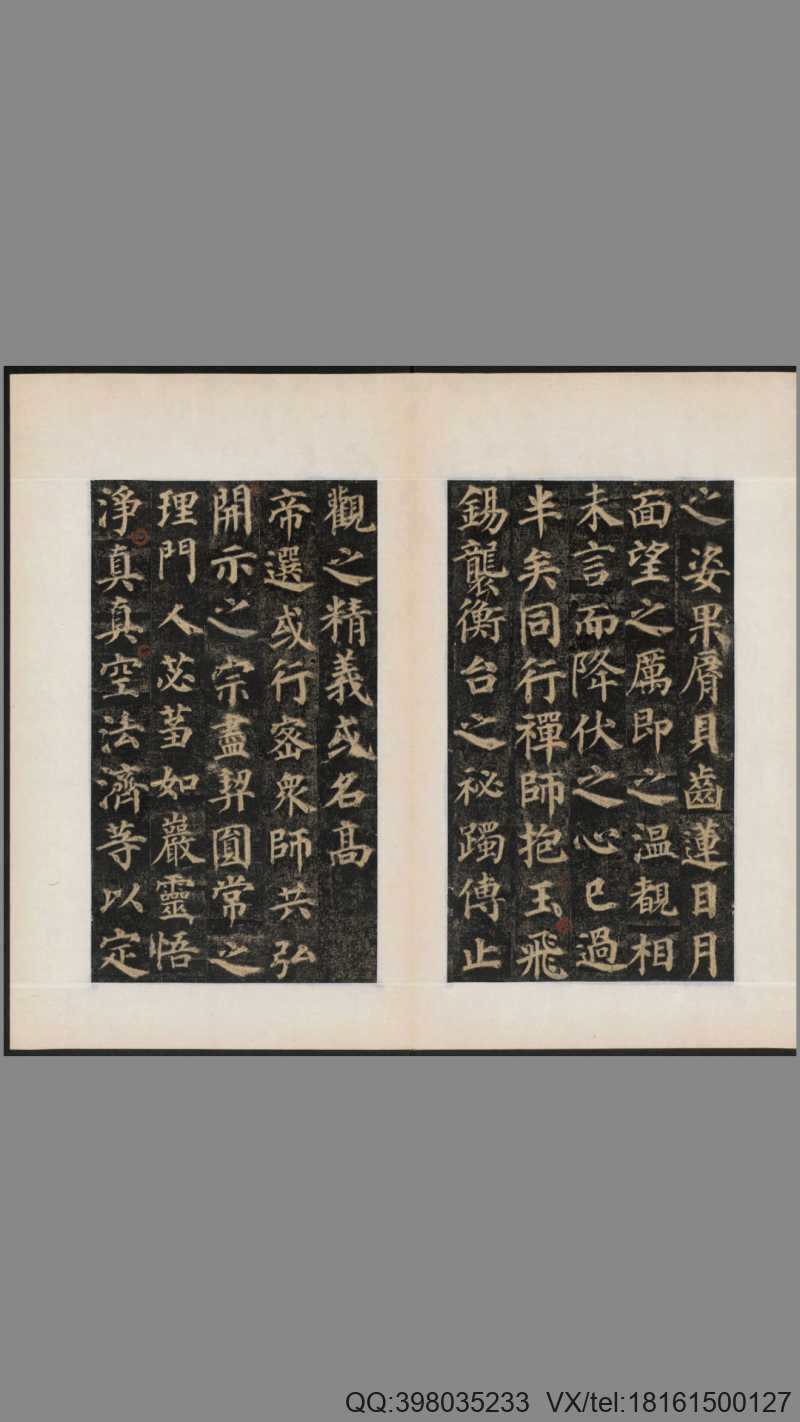 之姿果脣貝齒蓮目月
面望之厲即之温覩相
未言而降伏之心已過
半矣同行禪師抱玉飛
錫襲衡台之祕躅傳止
觀之精義或名高
帝選或行密衆師共弘
開示之宗盡契圓常之
理門人苾蒭如巖靈悟
淨真真空法濟等以定
QQ:398035233 VX/tel:18161500127